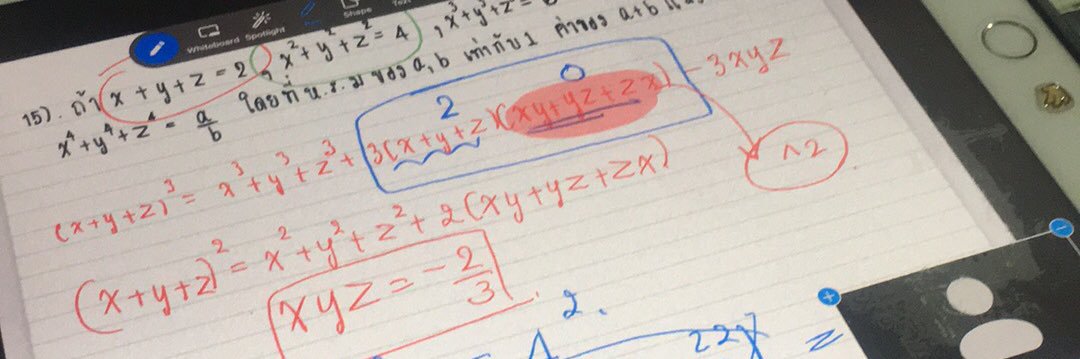 Whiteboard Spotlight Shape
15). ถ้า x + y + z = 2 , x² + y² + z² = 4 , x³ + y³ + z³ =
x⁴ + y⁴ + z⁴ = a/b โดยที่ ห.ร.ม ของ a, b เท่ากับ 1 ค่าของ a+b
2 0
(x+y+z)³ = x³ + y³ + z³ + 3(x+y+z)(xy+yz+zx) - 3xyz
(x+y+z)² = x² + y² + z² + 2(xy+yz+zx)
xyz = -2/3
2.